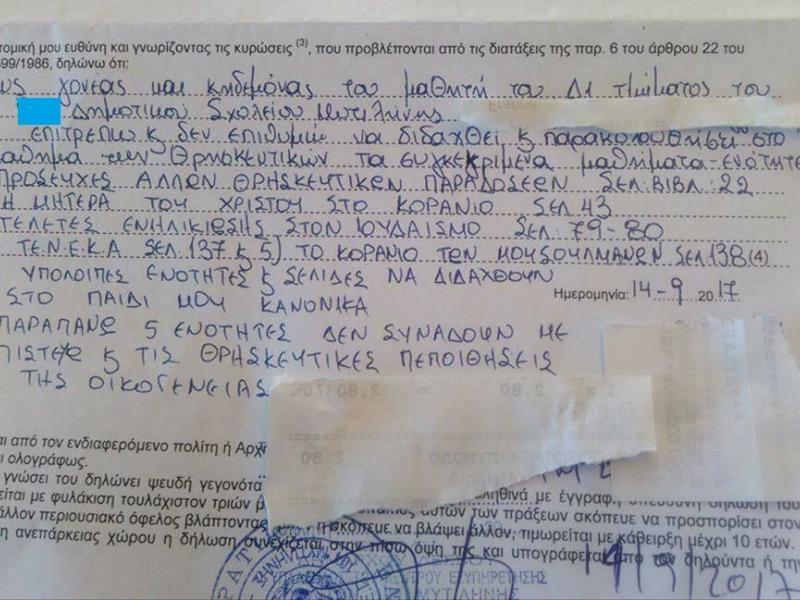 τομική μου ευθύνη και γνωρίζοντας τις κυρώσεις (3), που προβλέπονται από τις διατάξεις της παρ. 6 του άρθρου 22 του
599/1986, δηλώνω ότι:
ως γονέας και κηδεμόνας του μαθητή του Δ1 τμήματος του
Δημοτικού Σχολείου Μυτιλήνης
ΕΠΙΤΡΕΠΩ & ΔΕΝ ΕΠΙΘΥΜΩ ΝΑ ΔΙΔΑΧΘΕΙ & ΠΑΡΑΚΟΛΟΥΘΗΣΕΙ ΣΤΟ
άθημα των Θρησκευτικών τα συγκεκριμένα μαθήματα-ενότητε
ΠΡΟΣΕΥΧΕΣ ΑΛΛΩΝ ΘΡΗΣΚΕΥΤΙΚΩΝ ΠΑΡΑΔΟΣΕΩΝ ΣΕΛ. ΒΙΒΛ. 22
Η ΜΗΤΕΡΑ ΤΟΥ ΧΡΙΣΤΟΥ ΣΤΟ ΚΟΡΑΝΙΟ ΣΕΛ 43
ΤΕΛΕΤΕΣ ΕΝΗΛΙΚΙΩΣΗΣ ΣΤΟΝ ΙΟΥΔΑΙΣΜΟ ΣΕΛ. 79-80
ΤΕΝΕΚΑ ΣΕΛ 137 & 5) ΤΟ ΚΟΡΑΝΙΟ ΤΩΝ ΜΟΥΣΟΥΛΜΑΝΩΝ ΣΕΛ 138 (4)
ΥΠΟΛΟΙΠΕΣ ΕΝΟΤΗΤΕΣ & ΣΕΛΙΔΕΣ ΝΑ ΔΙΔΑΧΘΟΥΝ
ΣΤΟ ΠΑΙΔΙ ΜΟΥ ΚΑΝΟΝΙΚΑ
Ημερομηνία: 14-9 2017
ΠΑΡΑΠΑΝΩ 5 ΕΝΟΤΗΤΕΣ ΔΕΝ ΣΥΝΑΔΟΥΝ ΜΕ
ΠΙΣΤΕΙΣ & ΤΙΣ ΘΡΗΣΚΕΥΤΙΚΕΣ ΠΕΠΟΙΘΗΣΕΙΣ
ΤΗΣ ΟΙΚΟΓΕΝΕΙΑΣ
αι από τον ενδιαφερόμενο πολίτη ή Αρχή
ι ολογράφως.
γνώσει του δηλώνει ψευδή γεγονότα
είται με φυλάκιση τουλάχιστον τριών
αυτών των πράξεων σκόπευε να προσπορίσει στον
άλλον περιουσιακό όφελος βλάπτοντας
ή σκόπευε να βλάψει άλλον, τιμωρείται με κάθειρξη μέχρι 10 ετών.
η ανεπάρκειας χώρου η δήλωση συνεχίζεται στην πίσω όψη της και υπογράφεται από τον δηλούντα ή την
ΕΞΥΠΗΡΕΤΗΣΗΣ
ΜΥΤΙΛΗΝΗΣ
14/9/2017